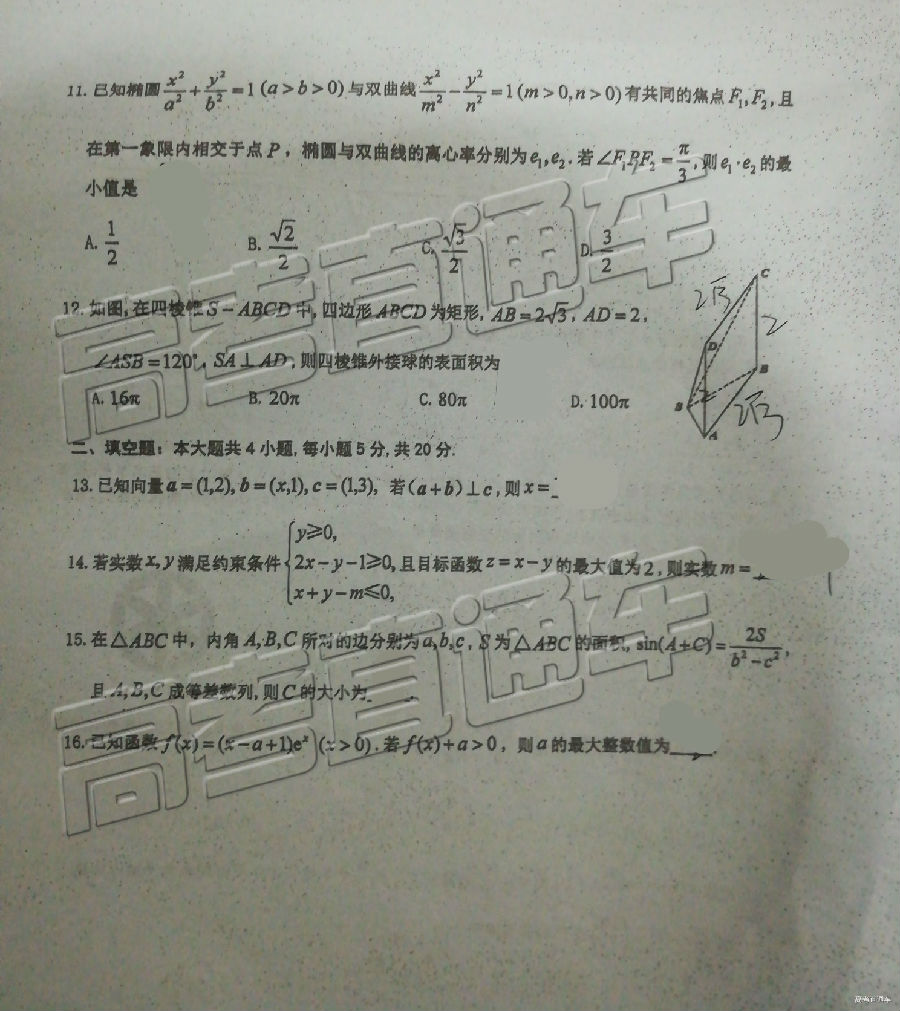 11. 已知椭圆 x²/a² + y²/b² = 1 (a > b > 0) 与双曲线 x²/m² − y²/n² = 1 (m > 0, n > 0) 有共同的焦点 F₁, F₂, 且
在第一象限内相交于点 P, 椭圆与双曲线的离心率分别为 e₁, e₂. 若 ∠F₁PF₂ = π/3, 则 e₁·e₂ 的最
小值是
A. 1/2 B. √2/2 C. √3/2 D. 3/2
12. 如图, 在四棱锥 S − ABCD 中, 四边形 ABCD 为矩形, AB = 2√3, AD = 2,
∠ASB = 120°, SA ⊥ AD, 则四棱锥外接球的表面积为
A. 16π B. 20π C. 80π D. 100π
C
D
B
S
A
2√3
2
2
2√3
二、填空题: 本大题共 4 小题, 每小题 5 分, 共 20 分.
13. 已知向量 a = (1,2), b = (x,1), c = (1,3), 若 (a + b) ⊥ c, 则 x =
14. 若实数 x, y 满足约束条件 { y ≥ 0, 2x − y − 1 ≥ 0, x + y − m ≤ 0, 且目标函数 z = x − y 的最大值为 2, 则实数 m =
15. 在 △ABC 中, 内角 A, B, C 所对的边分别为 a, b, c, S 为 △ABC 的面积, sin(A + C) = 2S/(b² − c²),
且 A, B, C 成等差数列, 则 C 的大小为
16. 已知函数 f(x) = (x − a + 1)eˣ (x > 0). 若 f(x) + a > 0, 则 a 的最大整数值为
高考直通车
高考直通车
高考直通车